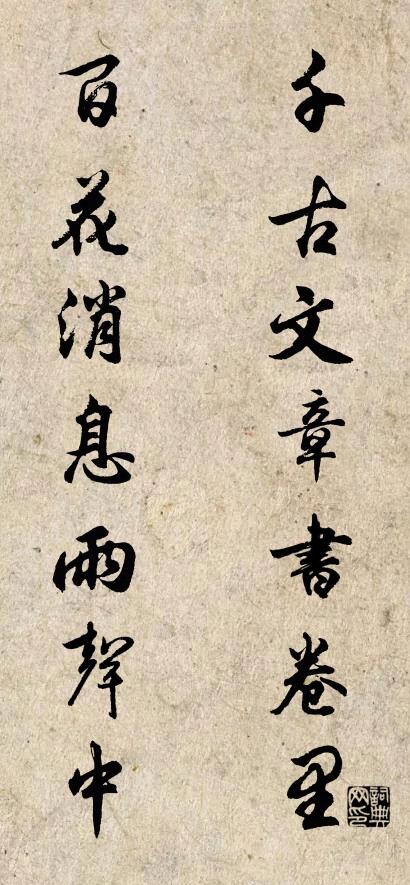 千古文章書卷里
百花消息雨聲中
詞典网印